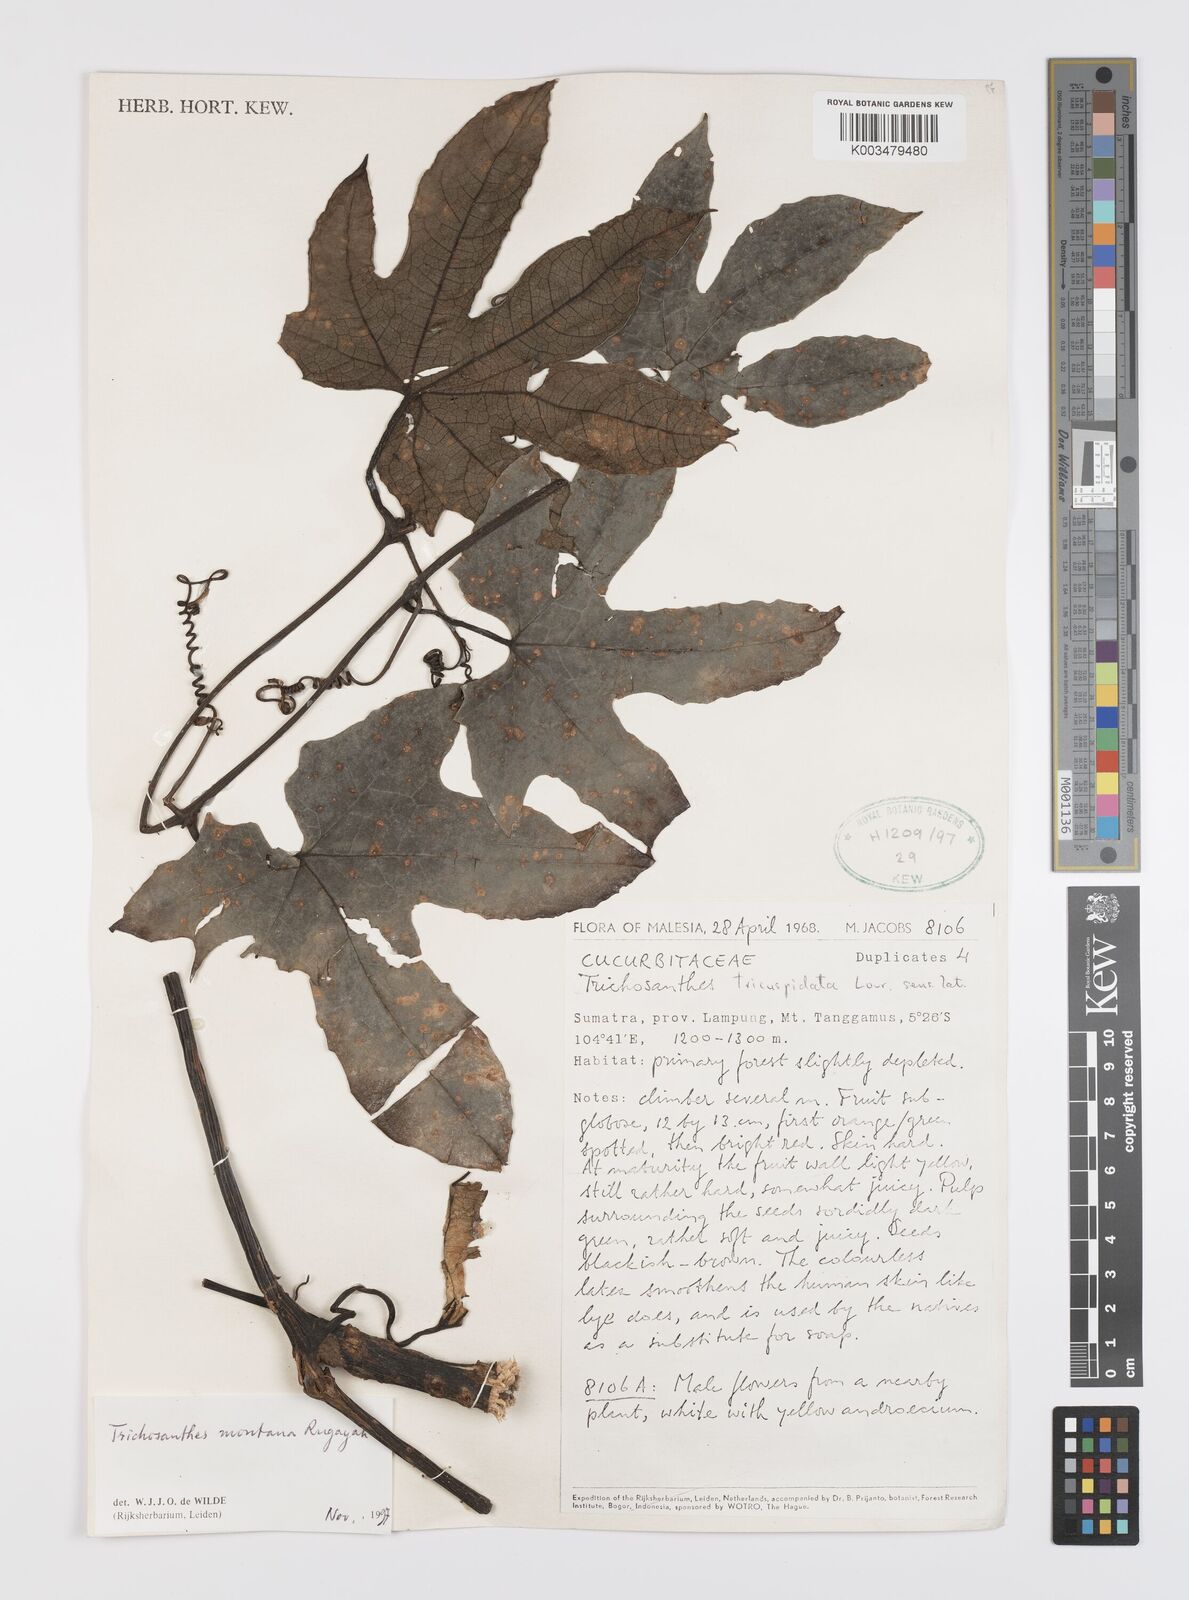 HERB. HORT. KEW.
ROYAL BOTANIC GARDENS KEW
K003479480
ROYAL BOTANIC GARDENS
H1209/97
29
KEW
FLORA OF MALESIA, 28 April 1968. M. JACOBS 8106
CUCURBITACEAE Duplicates 4
Trichosanthes tricuspidata Lour. sens. lat.
Sumatra, prov. Lampung, Mt. Tanggamus, 5°26'S
104°41'E, 1200-1300 m.
Habitat: primary forest slightly depleted.
Notes: climber several m. Fruit sub-
globose, 12 by 13 cm, first orange/green
spotted, then bright red. Skin hard.
At maturity the fruit wall light yellow,
still rather hard, somewhat juicy. Pulp
surrounding the seeds sordidly dark
green, rather soft and juicy. Seeds
blackish-brown. The colourless
latex smoothens the human skin like
lye does, and is used by the natives
as a substitute for soap.
8106A: Male flowers from a nearby
plant, white with yellow androecium.
Expedition of the Rijksherbarium, Leiden, Netherlands, accompanied by Dr. B. Prijanto, botanist, Forest Research
Institute, Bogor, Indonesia, sponsored by WOTRO, The Hague.
Trichosanthes montana Rugayah
det. W.J.J.O. de WILDE
(Rijksherbarium, Leiden) Nov. 1997
inches
Density
Don Williams
M001136
centimeters
Royal Botanic Gardens
Kew
0 1 2 3 4 5 6 7 8 9 10
cm
copyright reserved